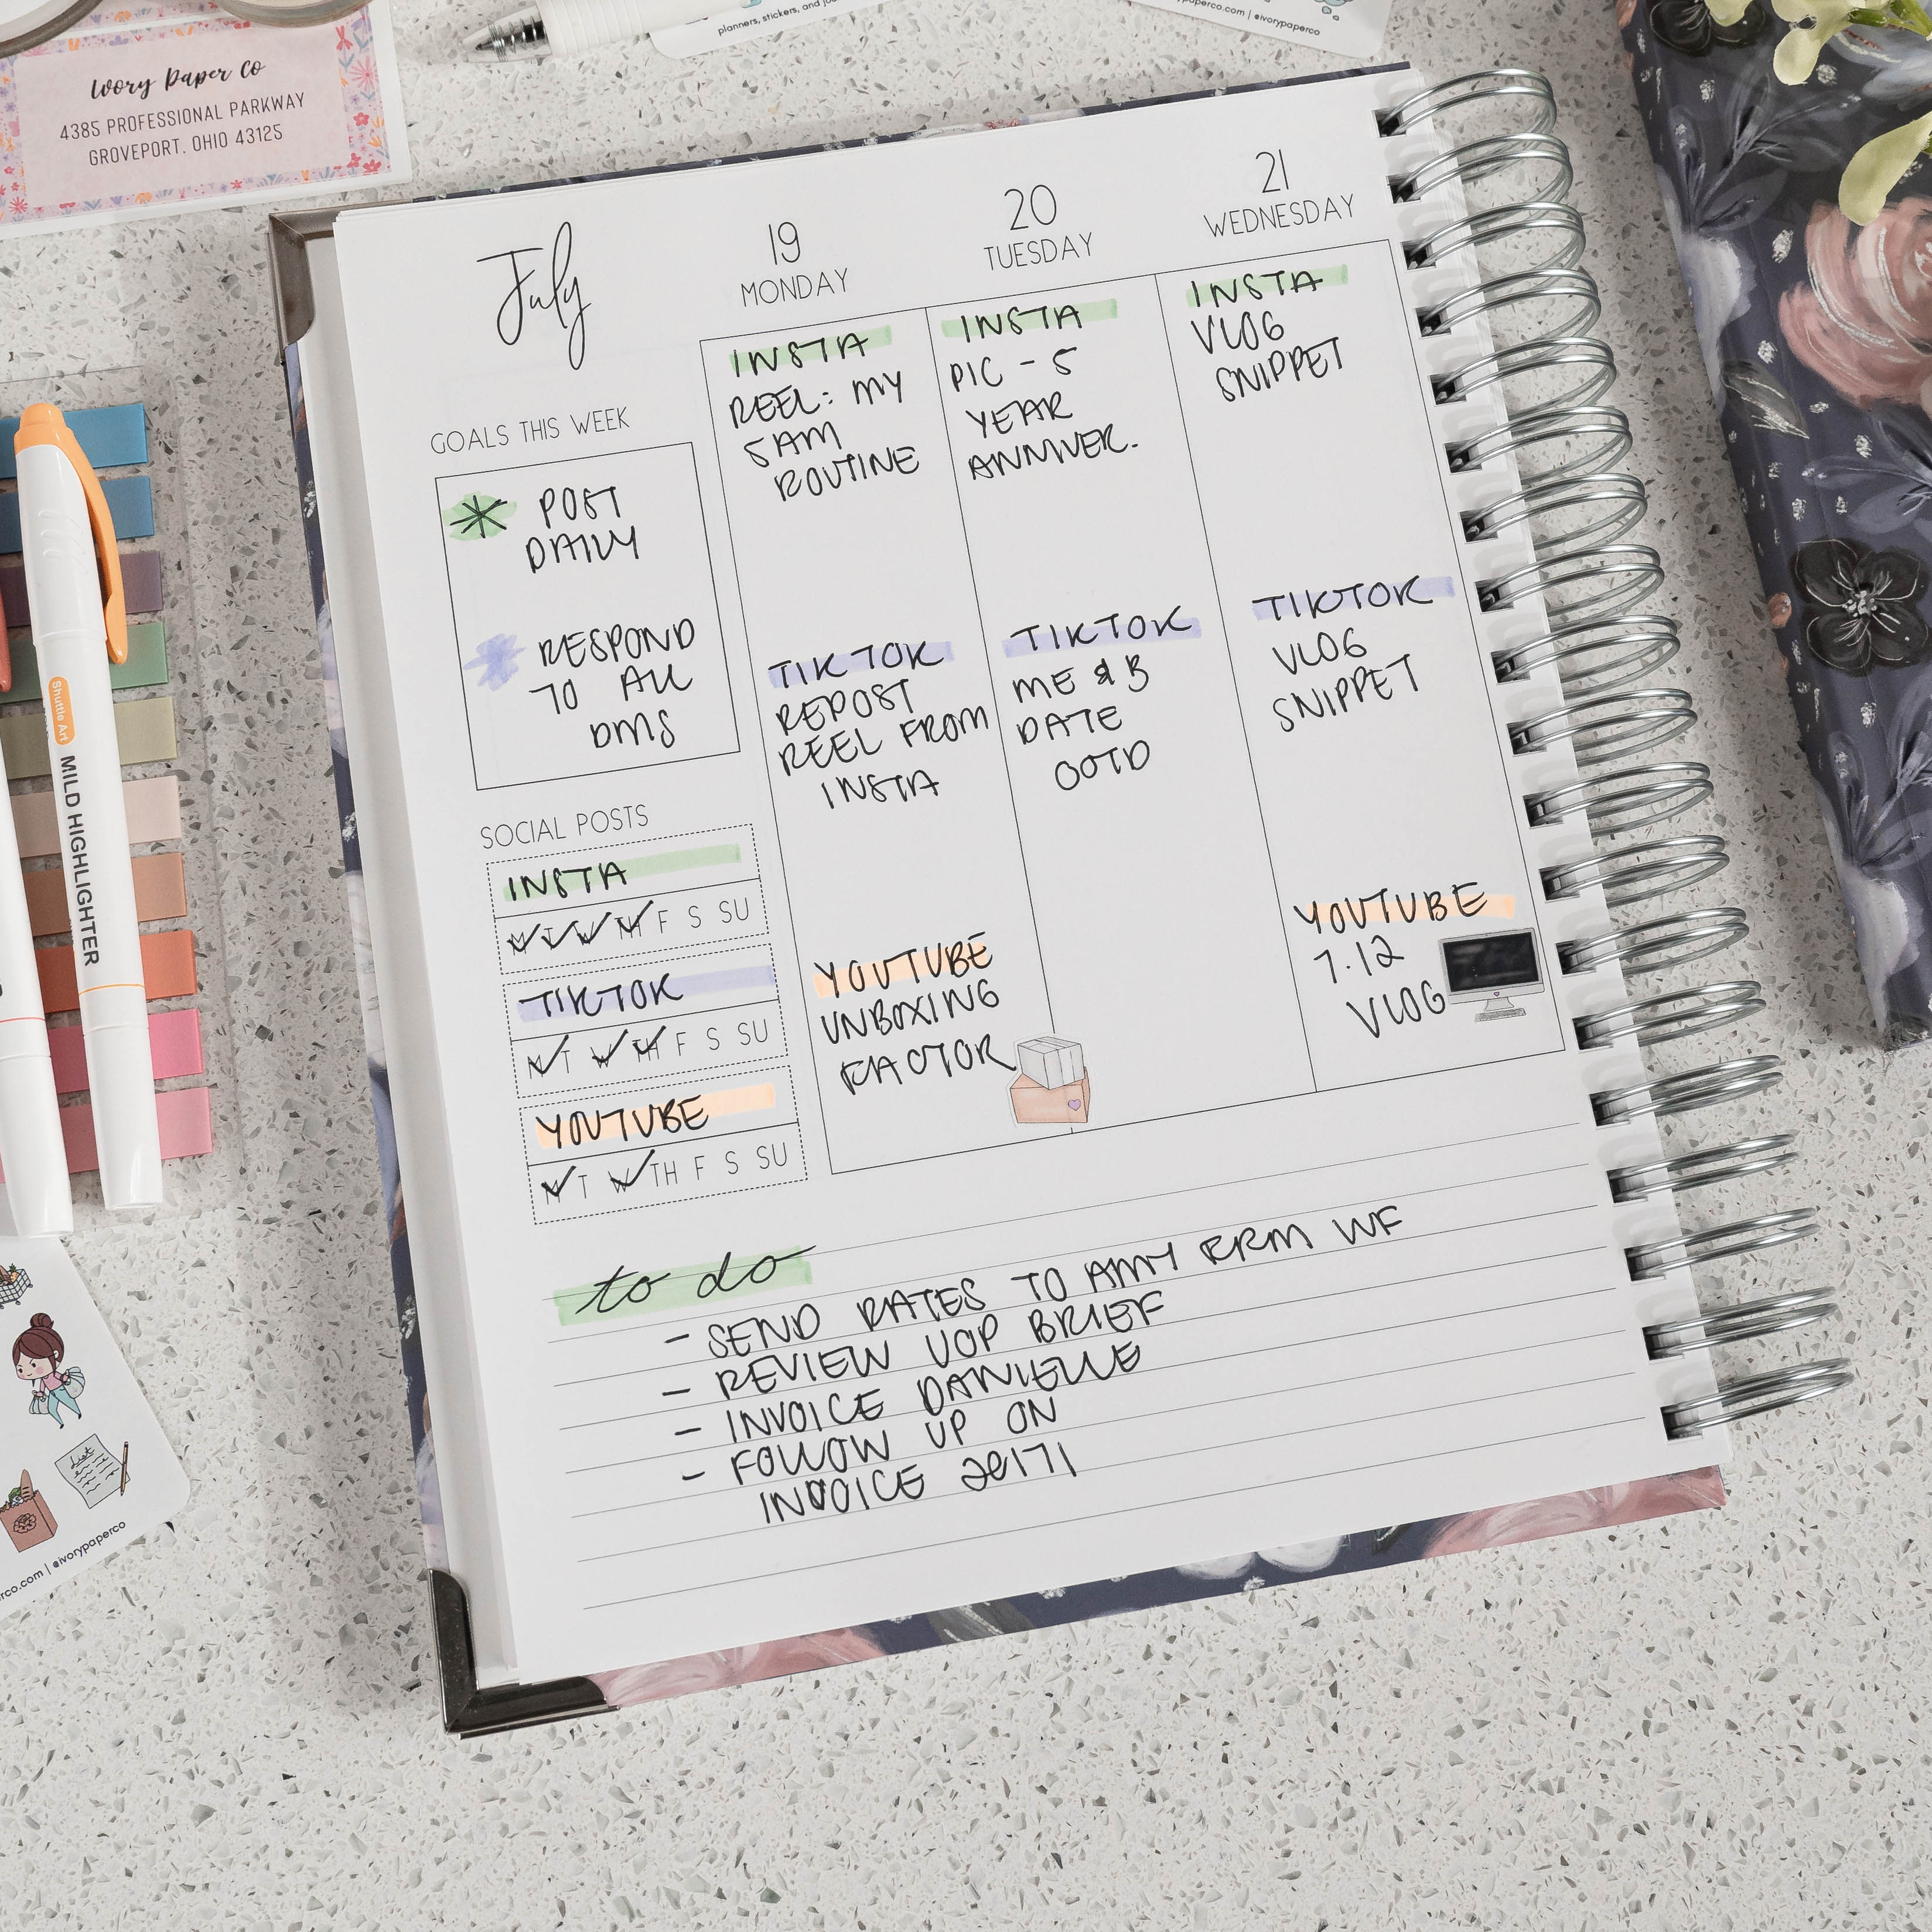 Ivory Paper Co
4385 PROFESSIONAL PARKWAY
GROVEPORT. OHIO 43125
planners, stickers, and
| @ivorypaperco
July
19
MONDAY
20
TUESDAY
21
WEDNESDAY
GOALS THIS WEEK
POST
DAILY
RESPOND
TO ALL
DMS
SOCIAL POSTS
INSTA
M T W TH F S SU
TIKTOK
M T W TH F S SU
YOUTUBE
M T W TH F S SU
INSTA
REEL: MY
5AM
ROUTINE
TIKTOK
REPOST
REEL FROM
INSTA
YOUTUBE
UNBOXING
FACTOR
INSTA
PIC - 5
YEAR
ANNIVER.
TIKTOK
ME & B
DATE
OOTD
INSTA
VLOG
SNIPPET
TIKTOK
VLOG
SNIPPET
YOUTUBE
7.12
VLOG
to do
- SEND RATES TO AMY WF
- REVIEW BRIEF
- INVOICE DANIELLE
- FOLLOW UP ON
INVOICE
Shuttle Art
MILD HIGHLIGHTER
List
rco.com | @ivorypaperco